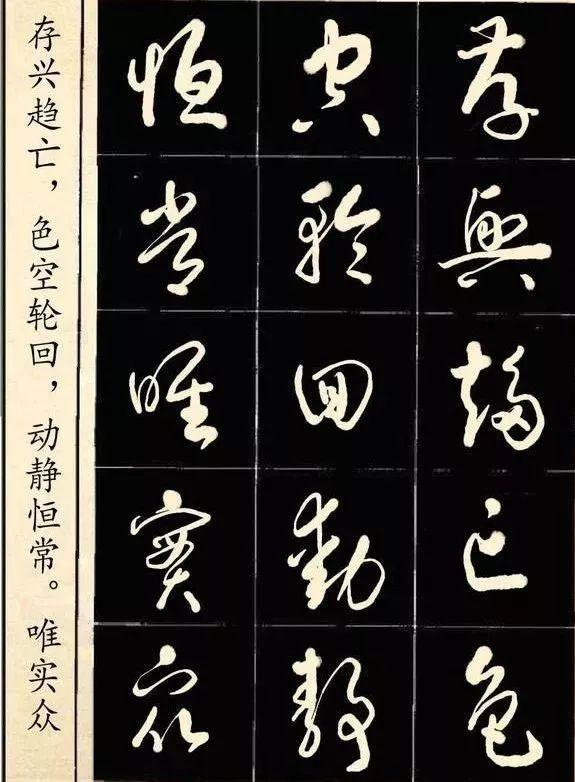 存興趨亡色
空輪回動靜
恒常唯實眾
存兴趋亡，色空轮回，动静恒常。唯实众